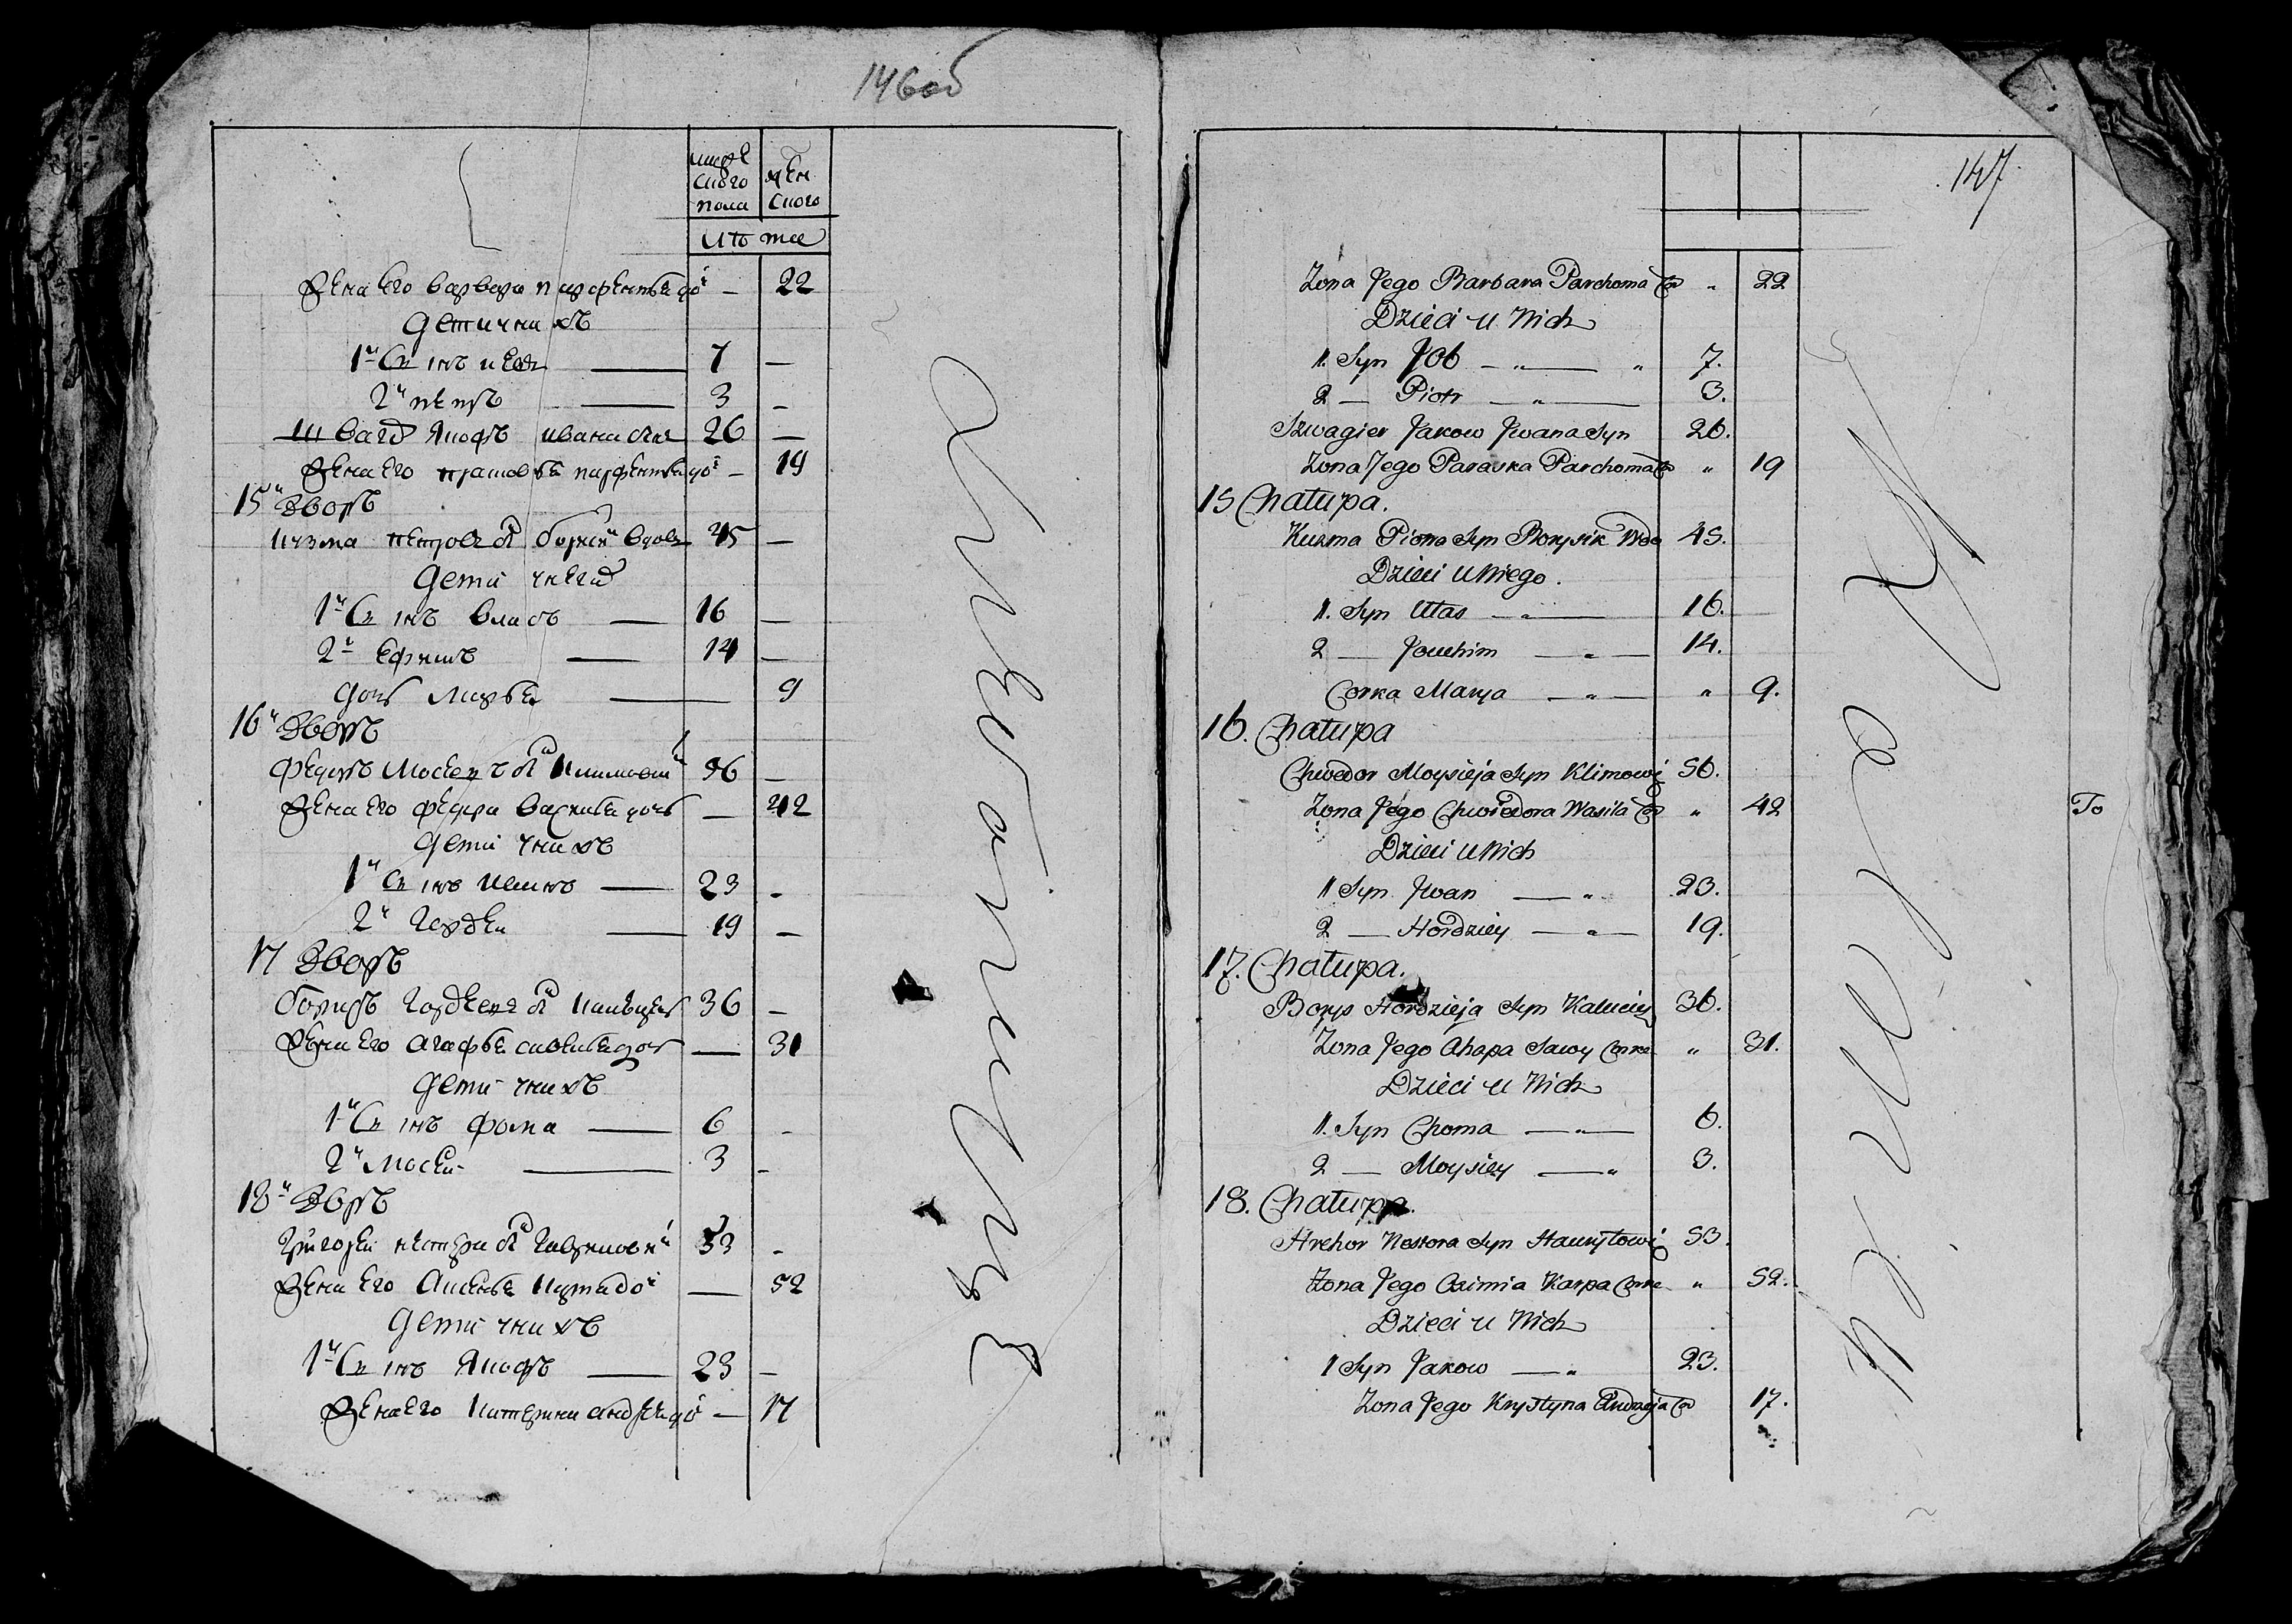 146об
мужескаго пола
женскаго
лѣта
Жена его варвара парфеньева до: — 22
Дети у них
1й Сынъ иевъ — 7 —
2й петръ — 3 —
швагер Яковъ иванов сынъ 26 —
Жена его прасковья парфеньева до: — 19
15й Дворъ
кузма петров сынъ борисик вдовъ 45 —
Дети у него
1й Сынъ власъ — 16 —
2й ефимъ — 14 —
дочь марья — 9
16й Дворъ
федоръ мосеевъ сынъ климович 56 —
Жена его федора васильева дочь — 42
Дети у нихъ
1й Сынъ иванъ — 23 —
2й гордей — 19 —
17 Дворъ
борисъ гордеевъ сынъ 36 —
Жена его агафья савина дочь — 31
Дети у нихъ
1й Сынъ фома — 6 —
2й мосей — 3 —
18й Дворъ
григорей нестера сынъ гаврилович 53 —
Жена его Аксенья карпа до: — 52
Дети у нихъ
1й Сынъ Яковъ — 23 —
Жена его катерина андреева до: — 17
147.
Zona Jego Barbara Parchoma Co „ 22
Dzieci u Nich
1. Syn Job — „ — „ 7.
2 — Piotr — „ — 3.
Szwagier Jakow Jwana Syn 26.
Zona Jego Paraska Parchoma Co „ 19
15 Chałupa.
Kuzma Piotra Syn Borysik Wdo 45.
Dzieci u Niego.
1. Syn Ułas — „ — 16.
2 — Jouchim — „ — 14.
Corka Marya — „ — „ 9.
16. Chałupa
Chwedor Moysieja Syn Klimowi 56.
Zona Jego Chwiedora Wasila Co „ 42
Dzieci u Nich
1 Syn Jwan — „ 23.
2 — Hordziey — „ — 19.
17. Chałupa.
Borys Hordzieja Syn Kałuciey 36.
Zona Jego Ahapa Sawy Corka „ 31.
Dzieci u Nich
1. Syn Choma — „ — 6.
2 — Moysiey — „ 3.
18. Chałupa.
Hrehor Nestora Syn Hauryłowi 53.
Zona Jego Axinia Karpa Corka „ 52.
Dzieci u Nich
1 Syn Jakow — „ 23.
Zona Jego Krystyna Andreja Co 17.
To